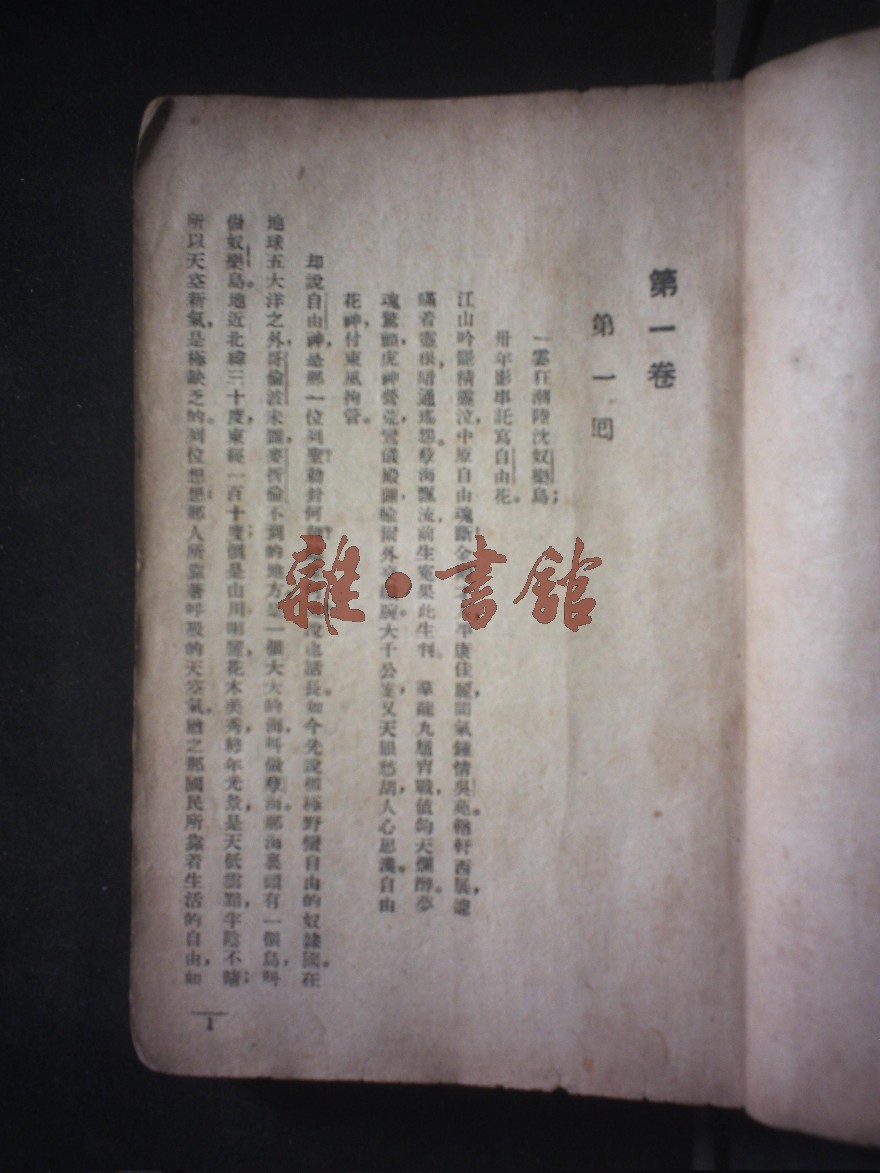 第一卷
第一回
一霎狂潮陸沈奴樂島;
卅年影事託寫自由花。
江山吟罷精靈泣,中原自由魂斷。金 平康佳麗,間氣鍾情吳苑。輶軒西展,遽
瞞着靈根,暗通瑤怨。孽海飄流,前生冤果此生判。 羣龍九馗宵戰,值鈞天爛醉,夢
魂驚顫。虎神營荒,鸞儀殿闢,輸爾外交 腕。大千公案,又天眼愁胡,人心思漢。自由
花神,付東風拘管。
却說自由神,是那一位列聖?勅封何 說也話長。如今先說個極野蠻自由的奴隸國。在
地球五大洋之外,哥倫波未闢,麥折倫不到的地方,是一個大大的海,叫做孽海。那海裏頭有一個島,叫
做奴樂島。地近北緯三十度,東經一百十度;倒是山川明麗,花木美秀;終年光景,是天低雲黯,半陰不晴;
所以天空新氣,是極缺乏的。列位想想:那人所靠着呼吸的天空氣,猶之那國民所靠着生活的自由,如
1
雜·書館